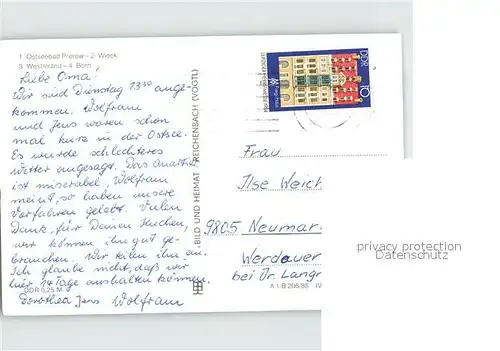 1 Ostseebad Prerow – 2 Wieck
3 Weststrand – 4 Born
Liebe Oma!
Wir sind Dienstag 13³⁰ ange-
kommen. Wolfram
und Jens waren schon
mal kurz in der Ostsee.
Es wurde schlechteres
Wetter angesagt. Das Quartier
ist miserabel, Wolfram
meint, so haben unsere
Vorfahren gelebt. Vielen
Dank, für Deinen Kuchen,
wir können ihn gut ge-
brauchen. Wir teilen ihn ein.
Ich glaube nicht, daß wir
hier 14 Tage aushalten können.
Dorothea Jens Wolfram
DDR 0,25 M
BILD UND HEIMAT REICHENBACH (VOGTL)
DDR
10
Frau
Ilse Weich
9805 Neumar
Werdauer
bei Dr. Langr
A 1/B 206/85 IV
privacy protection
Datenschutz